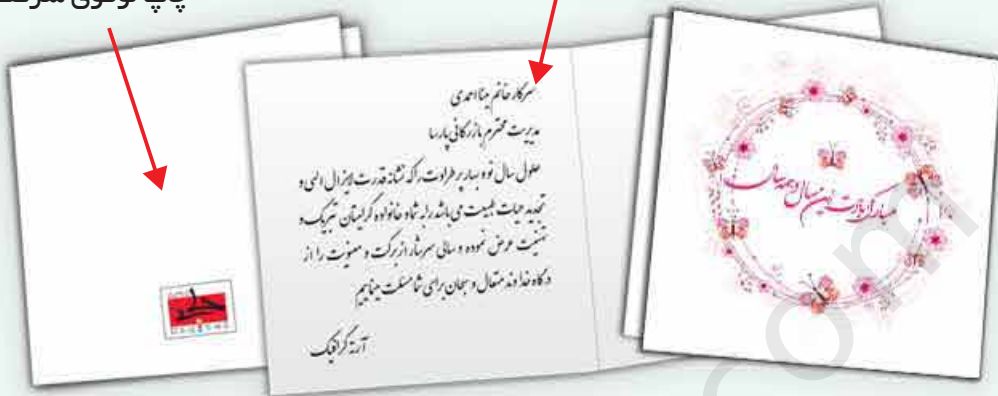 چاپ لوگوی
سرکار خانم مینا احمدی
مدیریت محترم بازرگانی پارسا
حلول سال نو و بهار پر طراوت را که نشانه قدرت لایزال الهی و
تجدید حیات طبیعت می باشد را به شما و خانواده گرامیتان تبریک و
تهنیت عرض نموده و سالی سرشار از برکت و معنویت را از
درگاه خداوند متعال و سبحان برای شما مسئلت مینمائیم
آرته گرافیک
مبارک بادت این سال و همه سال
com